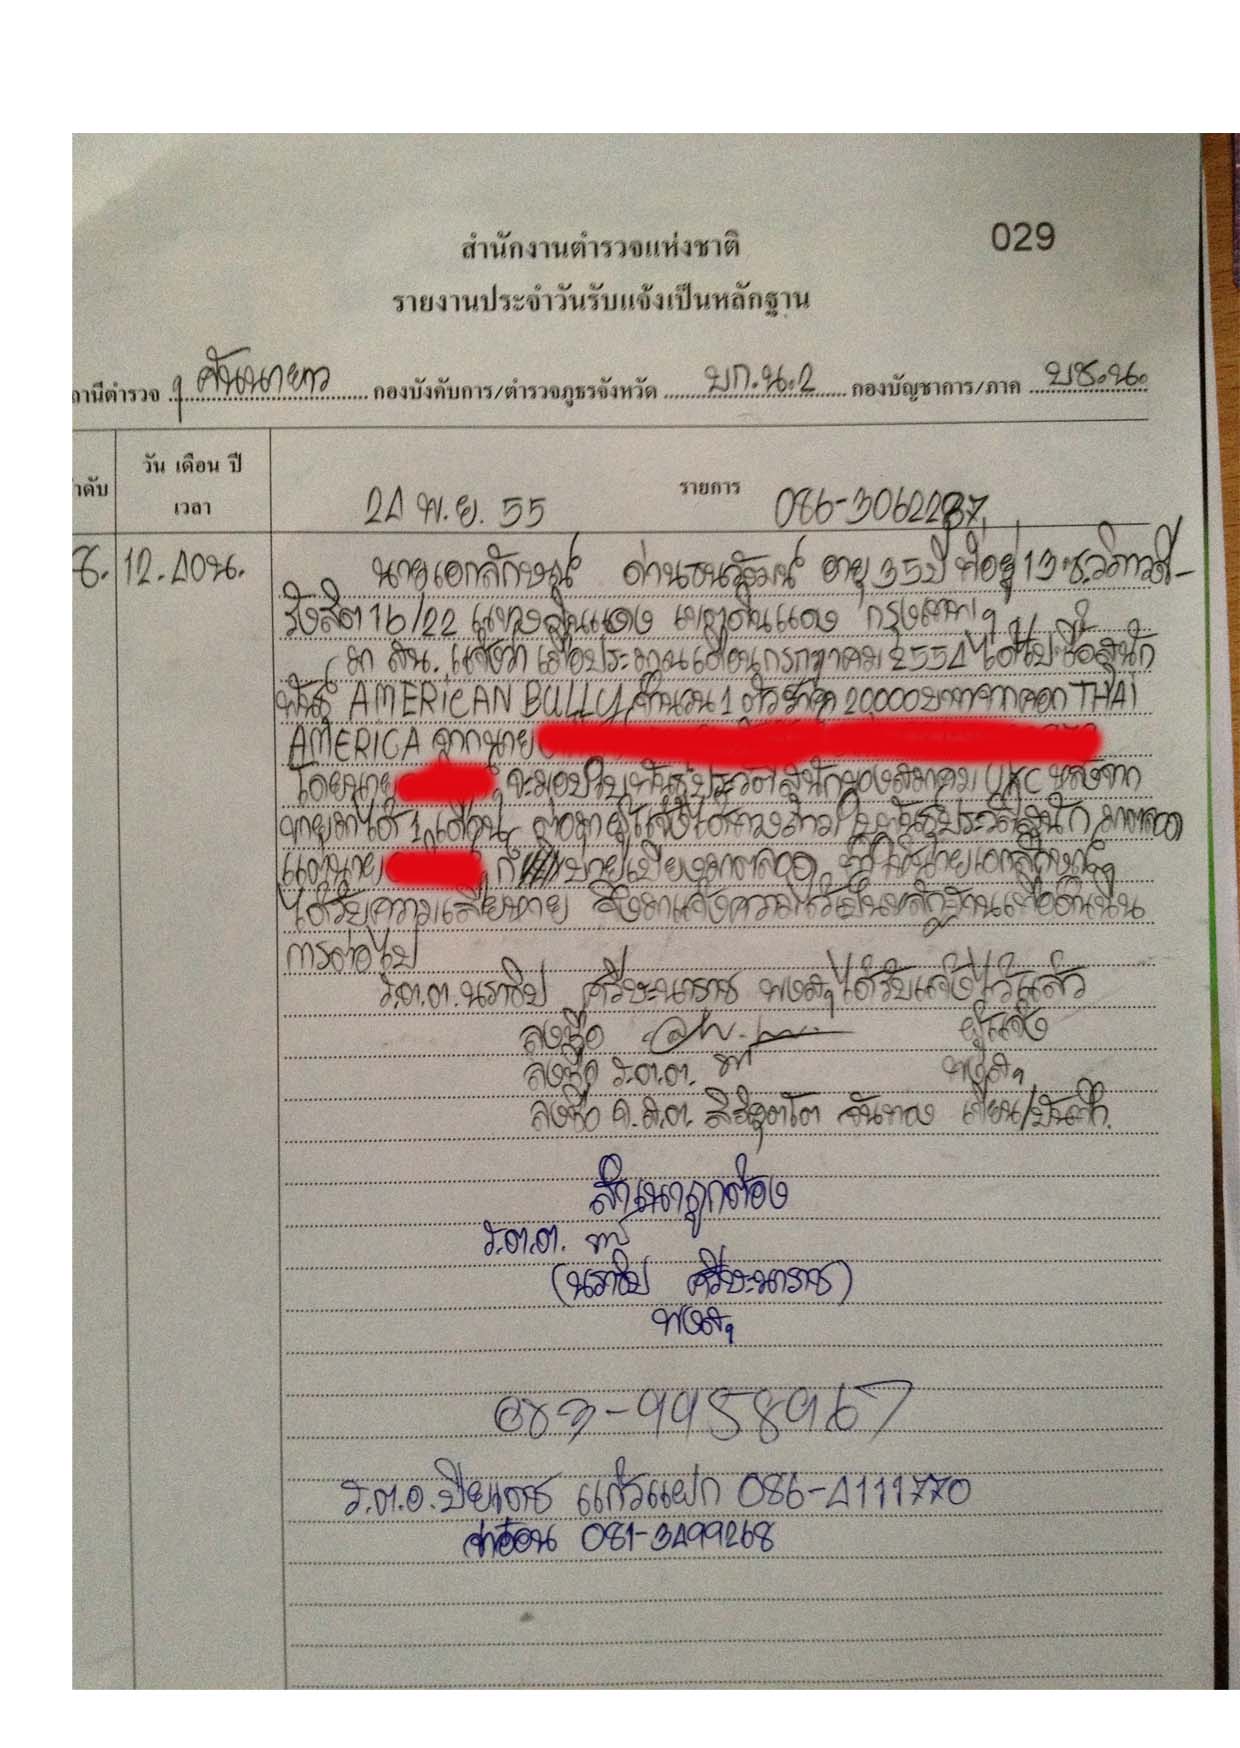 029
สำนักงานตำรวจแห่งชาติ
รายงานประจำวันรับแจ้งเป็นหลักฐาน
านีตำรวจ คันนายาว กองบังคับการ/ตำรวจภูธรจังหวัด บก.น.2 กองบัญชาการ/ภาค บช.น.
ำดับ วัน เดือน ปี เวลา รายการ
24 พ.ย. 55 086-3062287
8. 12.40น. นายเอกลักษณ์ อายุ 35 ปี ที่อยู่ 13 ซ.วิภาวดี-
รังสิต 16/22 แขวงดินแดง เขตดินแดง กรุงเทพฯ
มา สน. แจ้งว่า เมื่อประมาณเดือนกรกฎาคม 2554 ได้ไปซื้อสุนัข
พันธุ์ AMERICAN BULLY จำนวน 1 ตัว ราคา 20,000 บาท จากคอก THAI
AMERICA จากนาย
โดยนาย จะมอบใบพันธุ์ประวัติสุนัขของสมาคม UKC หลังจาก
ขายมาได้ 1 เดือน ต่อมาผู้แจ้งได้ทวงถามใบพันธุ์ประวัติสุนัข มาตลอด
แต่นาย ก็ บ่ายเบี่ยงมาตลอด ทำให้นายเอกลักษณ์ฯ
ได้รับความเสียหาย จึงมาแจ้งความไว้เป็นหลักฐานเพื่อดำเนิน
การต่อไป
ร.ต.ต.นราธิป ศรีษะนาราช พงส.ฯ ได้รับแจ้งไว้แล้ว
ลงชื่อ ผู้แจ้ง
ลงชื่อ ร.ต.ต. พงส.ฯ
ลงชื่อ ด.ต. จันทอง เขียน/บันทึก
สำเนาถูกต้อง
ร.ต.ต.
(นราธิป ศรีษะนาราช)
พงส.ฯ
083-9958967
ร.ต.อ.ปิยะเดช แก้วแฝก 086-4111770
081-3499268